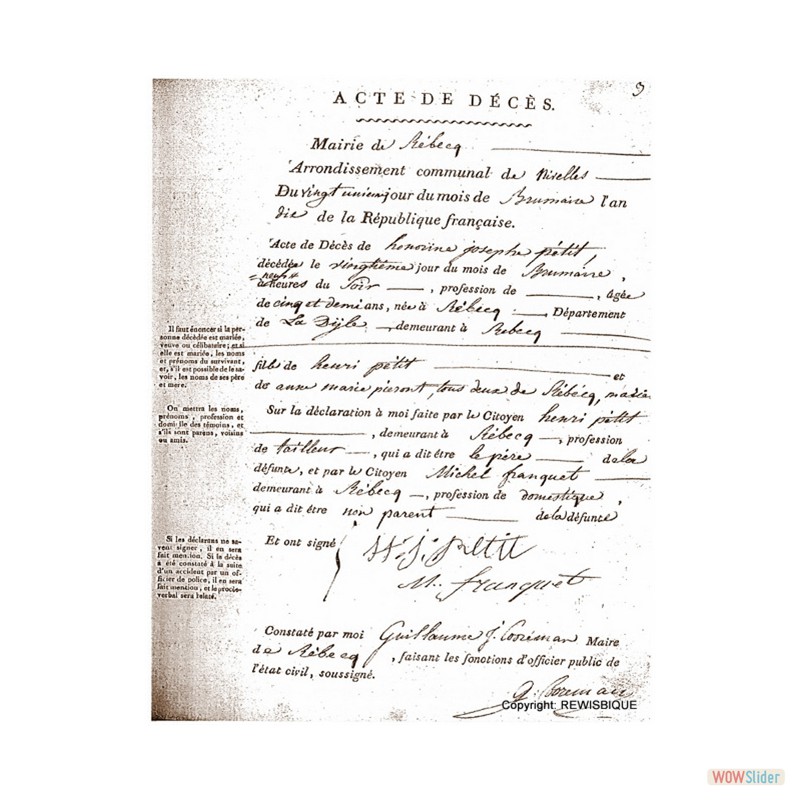 9
ACTE DE DÉCÈS.
Mairie de Rébecq
Arrondissement communal de Nivelles
Du vingt unieme jour du mois de Brumaire l'an
dix de la République française.
Acte de Décès de honorine josephe petit,
décédée le vingtième jour du mois de Brumaire,
à neuf heures du Soir, profession de , âgée
de cinq et demi ans, née à Rébecq , Département
de La Dijle , demeurant à Rebecq
fille de henri petit et
de anne marie pieront, tous deux de Rébécq, mariés
Sur la déclaration à moi faite par le Citoyen henri petit
, demeurant à Rébecq , profession
de tailleur , qui a dit être le père de la
défunte, et par le Citoyen Michel franquet
demeurant à Rébecq , profession de domestique,
qui a dit être non parent de la défunte
Et ont signé
H. j. Petit
M. franquet
Constaté par moi Guillaume J. Maire
de Rébecq , faisant les fonctions d'officier public de
l'état civil, soussigné.
G.
Il faut énoncer si la per-
sonne décédée est mariée,
veuve ou célibataire; et si
elle est mariée, les noms
et prénoms du survivant,
et, s'il est possible de le sa-
voir, les noms de ses père
et mere.
On mettra les noms,
prénoms, profession et
domicile des témoins, et
s'ils sont parens, voisins
ou amis.
Si les déclarans ne sa-
vent signer, il en sera
fait mention. Si le décès
a été constaté à la suite
d'un accident par un of-
ficier de police, il en sera
fait mention, et le procès-
verbal sera relaté.
Copyright: REWISBIQUE
WOWSlider